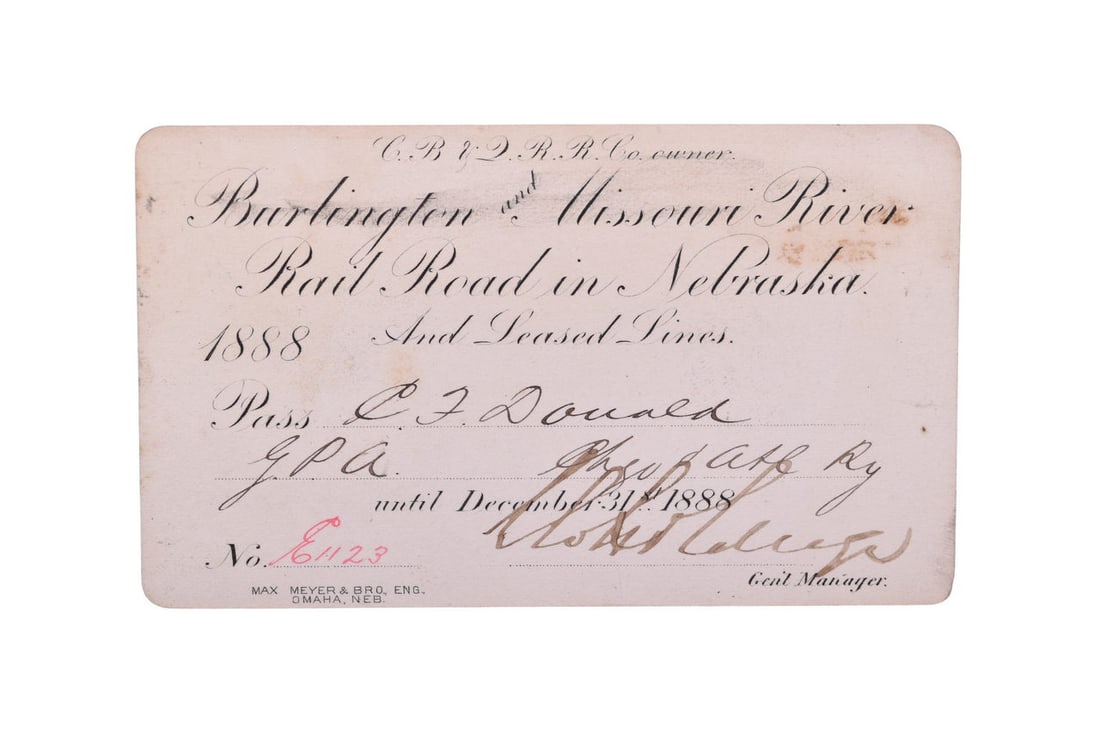 C. B. & Q. R. R. Co. owner.
Burlington and Missouri River
Rail Road in Nebraska.
And Leased Lines.
1888
Pass C. F. Donald
G P A. Chgo & Atl Ry
until December 31st 1888
No. E1123
Gen'l Manager.
MAX MEYER & BRO., ENG.
OMAHA, NEB.